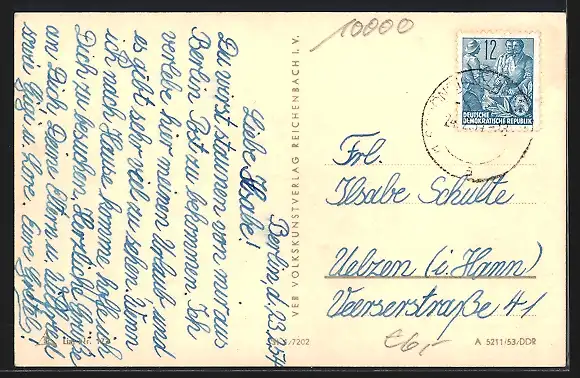 10000
Berlin, d. 23.3.54
Liebe Ilsabe!
Du wirst staunen von mir aus
Berlin Post zu bekommen. Ich
verlebe hier meinen Urlaub und
es gibt sehr viel zu sehen. Wenn
ich nach Hause komme, hoffe ich
Dich zu besuchen. Herzliche Grüße
an Dich, Deine Eltern u.
sowie u. Lore. Eure
VEB VOLKSKUNSTVERLAG REICHENBACH I. V.
12
DEUTSCHE
DEMOKRATISCHE REPUBLIK
Frl.
Ilsabe Schulte
Uelzen (i. Hann)
Veerserstraße 41
€6,-
/7202
A 5211/53/DDR